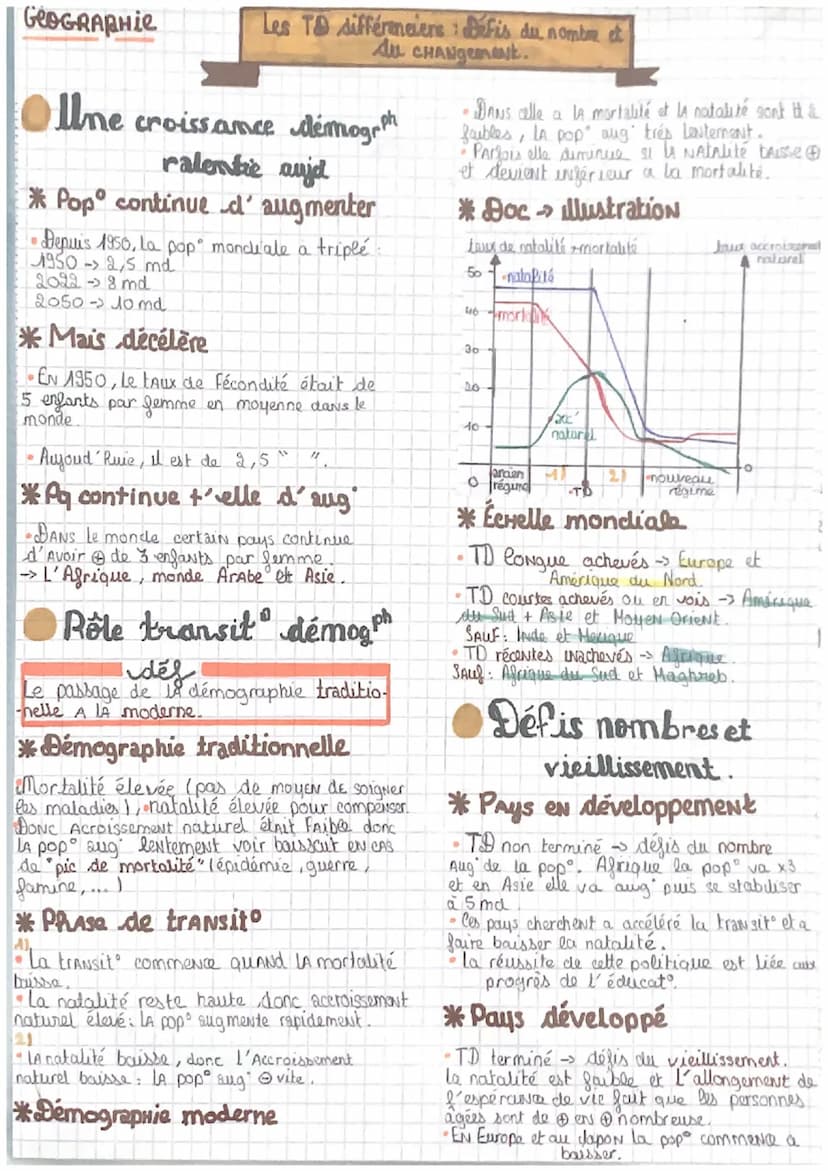 GÉOGRAPHIE
Les TD différenciers : Défis du nombre et
du CHANgement.
Une croissance démogrph
ralentie aujd
* Pop° continue d'augmenter
• Depuis 1950, la pop° mondiale a triplé :
1950 -> 2,5 md
2022 -> 8 md
2050 -> 10 md
* Mais décélère
• EN 1950, le taux de fécondité était de
5 enfants par femme en moyenne dans le
monde.
• Aujoud'huie, il est de 2,5 " ".
* Pq continue t'elle d'aug°
• DANS le monde certain pays continue
d'avoir ⊕ de 3 enfants par femme.
-> L'Afrique, monde Arabe et Asie.
Rôle transit° démogph
déf
Le passage de la démographie traditio-
-nelle A LA moderne.
* Démographie traditionnelle
• Mortalité élevée (pas de moyen de soigner
les maladies), • natalité élevée pour compenser.
DONC Acroissement naturel était faible donc
LA pop° aug° lentement voir baissait en cas
de "pic de mortalité" (épidémie, guerre,
famine, ...)
* Phase de transit°
1)
• La transit° commence quand LA mortalité
baisse.
• La natalité reste haute donc accroissement
naturel élevé : LA pop° augmente rapidement.
2)
• LA natalité baisse, donc l'Accroissement
naturel baisse : LA pop° aug° ⊖ vite.
* Démographie moderne
• DANS celle a la mortalité et la natalité sont
faibles, la pop° aug° très lentement.
• Parfois elle diminue si la natalité baisse ⊕
et devient inférieur a la mortalité.
* Doc -> illustration
taux de natalité + mortalité
taux accroissement
naturel
50
• natalité
40
• mortalité
30
20
10
• acc°
naturel
0
0
ancien
régime
1)
TD
2)
• nouveau
régime
* Échelle mondiale
• TD longue achevés -> Europe et
Amérique du Nord.
• TD courtes achevés ou en vois -> Amérique
du Sud + Asie et Moyen Orient.
SAUF : Inde et Mexique
• TD récentes inachevés -> Afrique.
SAUF : Afrique du Sud et Maghreb.
Défis nombres et
vieillissement.
* Pays en développement
• TD non terminé -> défis du nombre
Aug° de la pop°. Afrique la pop° va x3
et en Asie elle va aug° puis se stabiliser
à 5 md.
• Ces pays cherchent a accéléré la transit° et a
faire baisser la natalité.
• la réussite de cette politique est liée aux
progrès de l'éducat°.
* Pays développé
• TD terminé -> défis du vieillissement.
la natalité est faible et l'allongement de
l'espérance de vie fait que les personnes
âgées sont de ⊕ en ⊕ nombreuse.
• EN Europe et au Japon la pop° commence a
baisser.